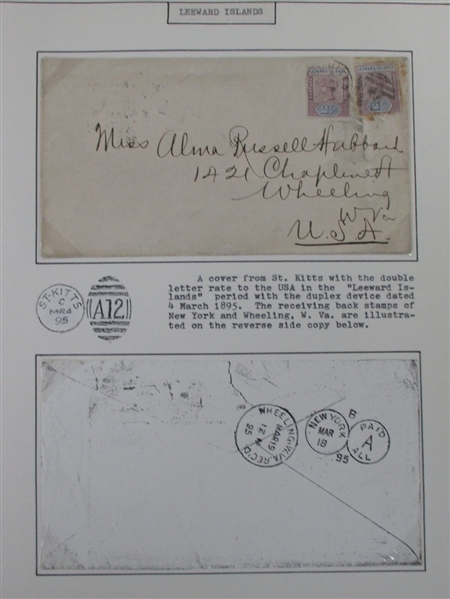 LEEWARD ISLANDS
LEEWARD ISLANDS
Miss Alma Russell Hubbard
1421 Chapline St
Wheeling
W. Va
U.S.A.
A cover from St. Kitts with the double
letter rate to the USA in the "Leeward Is-
lands" period with the duplex device dated
4 March 1895. The receiving back stamps of
New York and Wheeling, W. Va. are illustra-
ted on the reverse side copy below.
ST-KITTS
C
MR4
95
A12
WHEELING, W.VA. REC'D.
MAR 19
12 M
95
NEW YORK
MAR
18
95
B
PAID
A
ALL